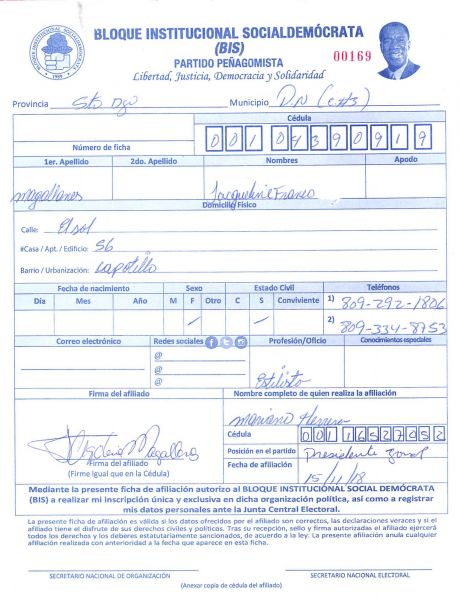 BLOQUE INSTITUCIONAL SOCIALDEMÓCRATA
(BIS)
PARTIDO PEÑAGOMISTA
00169
Libertad, Justicia, Democracia y Solidaridad
Provincia Sto Dgo Municipio D.N
Cédula
Número de ficha 001 0439091 9
1er. Apellido 2do. Apellido Nombres Apodo
Magallanes Jacqueline Franco
Domicilio Físico
Calle: El sol
#Casa / Apt. / Edificio: 56
Barrio / Urbanización: Capotillo
Fecha de nacimiento Sexo Estado Civil Teléfonos
Día Mes Año M F Otro C S Conviviente 1) 809-292-1806
2) 809-334-8753
Correo electrónico Redes sociales Profesión/Oficio Conocimientos especiales
@
@
@
Estilista
Firma del afiliado Nombre completo de quien realiza la afiliación
Mariano Herrera
Cédula 001 1652705 2
Posición en el partido Presidente zonal
Firma del afiliado
(Firme igual que en la Cédula)
Fecha de afiliación 15/11/18
Mediante la presente ficha de afiliación autorizo al BLOQUE INSTITUCIONAL SOCIAL DEMÓCRATA
(BIS) a realizar mi inscripción única y exclusiva en dicha organización política, así como a registrar
mis datos personales ante la Junta Central Electoral.
La presente ficha de afiliación es válida si los datos ofrecidos por el afiliado son correctos, las declaraciones veraces y si el
afiliado tiene el disfrute de sus derechos civiles y políticos. Tras su recepción, sello y firma autorizadas el afiliado ejercerá
todos los derechos y los deberes estatutariamente sancionados, de acuerdo a la ley. La presente afiliación anula cualquier
afiliación realizada con anterioridad a la fecha que aparece en esta ficha.
SECRETARIO NACIONAL DE ORGANIZACIÓN SECRETARIO NACIONAL ELECTORAL
(Anexar copia de cédula del afiliado)